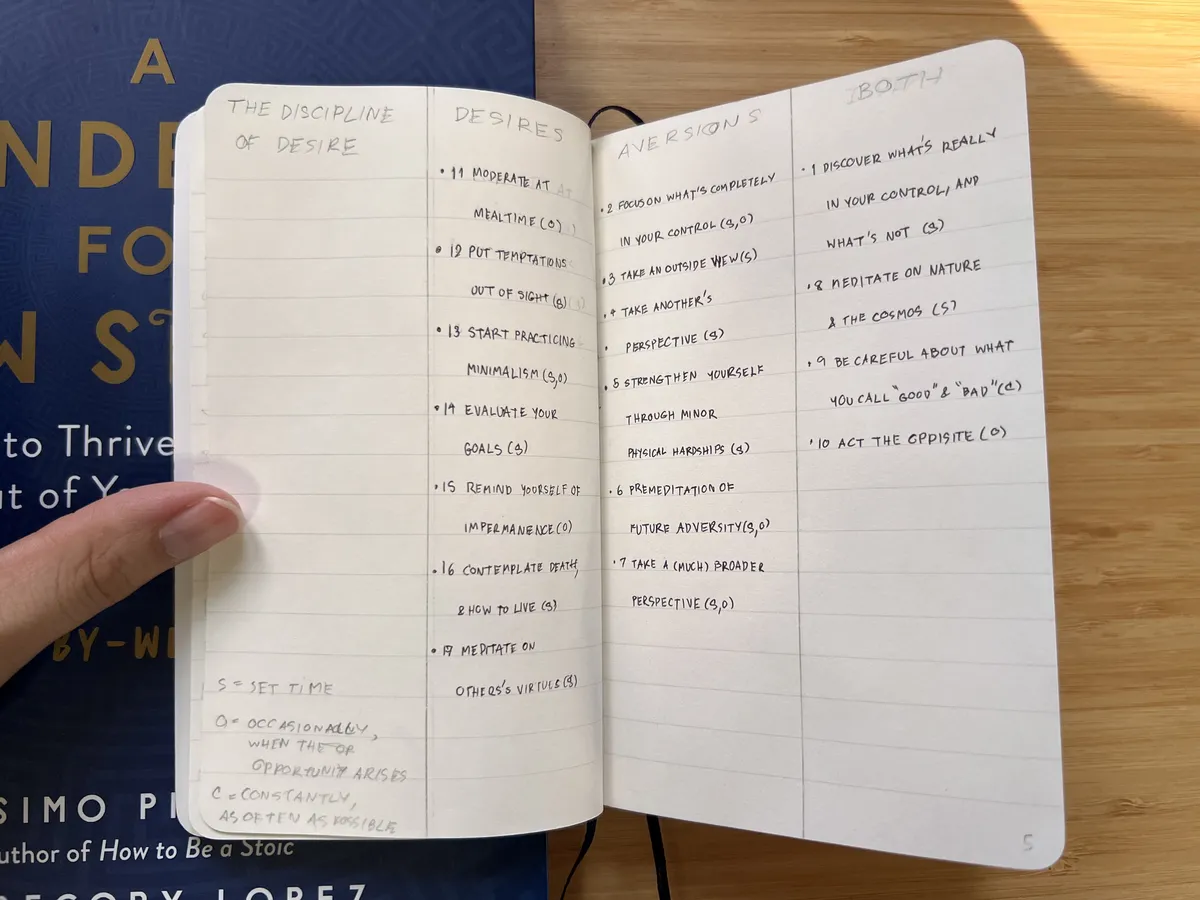 A
NDE
FO
W S
to Thrive
ut of Y
BY-W
SIMO PI
uthor of How to Be a Stoic
EGORY LOPEZ
THE DISCIPLINE
OF DESIRE
S = SET TIME
O = OCCASIONALLY,
WHEN THE OP
OPPORTUNITY ARISES
C = CONSTANTLY,
AS OFTEN AS POSSIBLE
DESIRES
• 11 MODERATE AT AT
MEALTIME (O) )
• 12 PUT TEMPTATIONS
OUT OF SIGHT (S)
• 13 START PRACTICING
MINIMALISM (S,O)
• 14 EVALUATE YOUR
GOALS (S)
• 15 REMIND YOURSELF OF
IMPERMANENCE (O)
• 16 CONTEMPLATE DEATH,
& HOW TO LIVE (S)
• 17 MEDITATE ON
OTHERS'S VIRTUES (S)
AVERSIONS
• 2 FOCUS ON WHAT'S COMPLETELY
IN YOUR CONTROL (S,O)
• 3 TAKE AN OUTSIDE VIEW (S)
• 4 TAKE ANOTHER'S
• PERSPECTIVE (S)
• 5 STRENGTHEN YOURSELF
THROUGH MINOR
PHYSICAL HARDSHIPS (S)
• 6 PREMEDITATION OF
FUTURE ADVERSITY (S,O)
• 7 TAKE A (MUCH) BROADER
PERSPECTIVE (S,O)
BOTH
• 1 DISCOVER WHAT'S REALLY
IN YOUR CONTROL, AND
WHAT'S NOT (S)
• 8 MEDITATE ON NATURE
& THE COSMOS (S)
• 9 BE CAREFUL ABOUT WHAT
YOU CALL "GOOD" & "BAD" (C)
• 10 ACT THE OPPISITE (O)
5